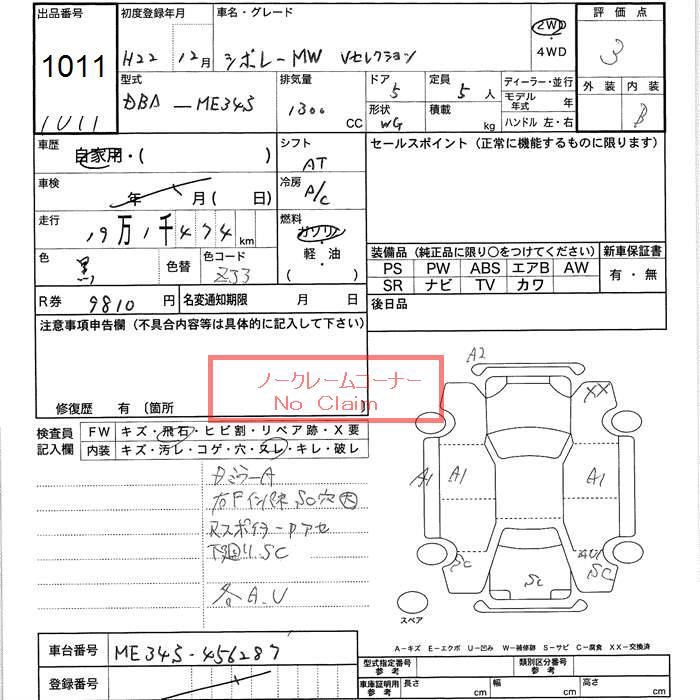 出品番号
1011
1011
初度登録年月
H22 12月
車名・グレード
シボレーMW Vセレクション
2WD
4WD
評価点
3
外装 内装
B
型式
DBA-ME34S
排気量
1300 CC
ドア
5
定員
5 人
形状
WG
積載
kg
ディーラー・並行
モデル年式 年
ハンドル 左・右
車歴
自家用・( )
シフト
AT
セールスポイント (正常に機能するものに限ります)
車検
年 月( 日)
冷房
P/C
走行
19万1千474km
燃料
ガソリン
軽・油
( )
色
黒
色替
色コード
ZJ3
装備品 (純正品に限り○をつけてください)
新車保証書
PS PW ABS エアB AW
SR ナビ TV カワ
有・無
R券 9810 円
名変通知期限 月 日
後日品
注意事項申告欄 (不具合内容等は具体的に記入して下さい)
ノークレームコーナー
No Claim
修復歴 有 〔箇所
検査員記入欄
FW キズ・飛石・ヒビ割・リペア跡・X要
内装 キズ・汚レ・コゲ・穴・スレ・キレ・破レ
タミラーA
右Fインパネ SC穴大
Rスポイラー Pアセ
下廻り.SC
各A.U
A2
XX
A1
A1
A1
SC
AU1
SC
SC
スペア
A-キズ E-エクボ U-凹み W-補修跡 S-サビ C-腐食 XX-交換済
車台番号 ME34S-456287
登録番号
型式指定番号 参考
類別区分番号 参考
車庫証明用 参考
長さ cm
幅 cm
高さ cm